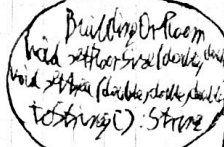 BuildingOrRoom
void setFloorSize(double, dou
void setArea(double, double, double
toString() : String